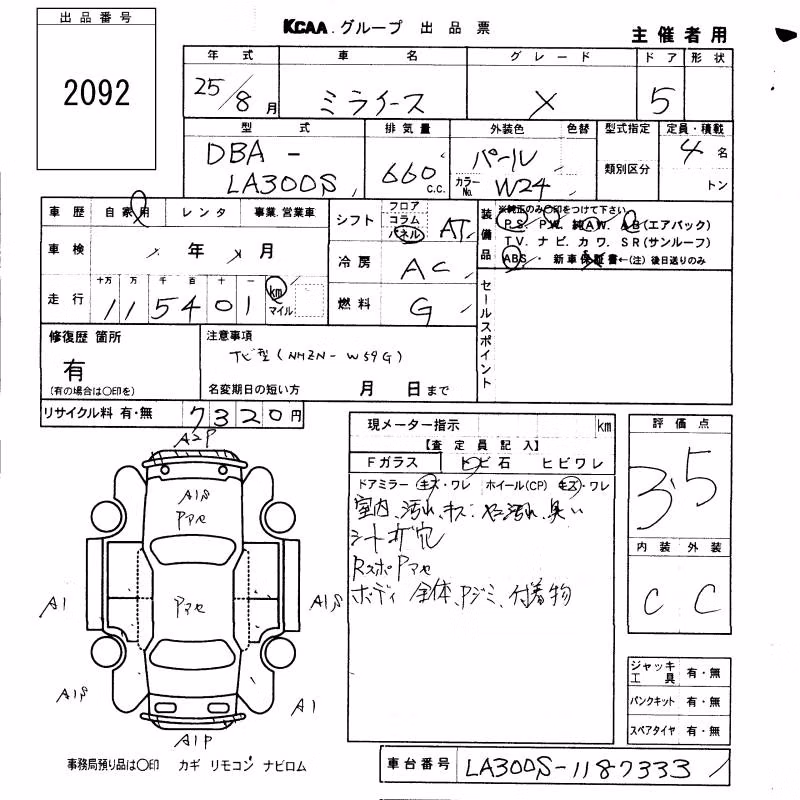 出品番号
2092
KCAA.グループ 出品票
主催者用
年式 車名 グレード ドア 形状
25/8月 ミライース X 5
型式 排気量 外装色 色替 型式指定 定員・積載
DBA-LA300S 660 C.C. パール カラーNo. W24 類別区分 4名 トン
車歴 自家用 レンタ 事業.営業車
シフト フロア コラム パネル AT
装備品 ※純正のみ○印をつけて下さい
PS. PW. 純AW. AB(エアバック)
TV. ナビ. カワ. SR(サンルーフ)
ABS. 新車保証書←(注)後日送りのみ
車検 年 月
冷房 AC
走行 十万 万 千 百 十 一
115401 km マイル
燃料 G
セールスポイント
修復歴 箇所
有
(有の場合は○印を)
注意事項
ナビ型(NHZN-W59G)
名変期日の短い方 月 日まで
リサイクル料 有・無 7320円
現メーター指示 km
【査定員記入】
Fガラス トビ石 ヒビワレ
ドアミラー キズ・ワレ ホイール(CP) キズ・ワレ
室内、汚れ、キズ、臭い
シート 穴
RスポPマセ
ボディ 全体、Pジミ、付着物
評価点
3.5
内装 外装
C C
A2P
A1S
Pマセ
Pマセ
A1
A1S
A1S
A1
A1P
ジャッキ工具 有・無
パンクキット 有・無
スペアタイヤ 有・無
事務局預り品は○印 カギ リモコン ナビロム
車台番号 LA300S-1187333